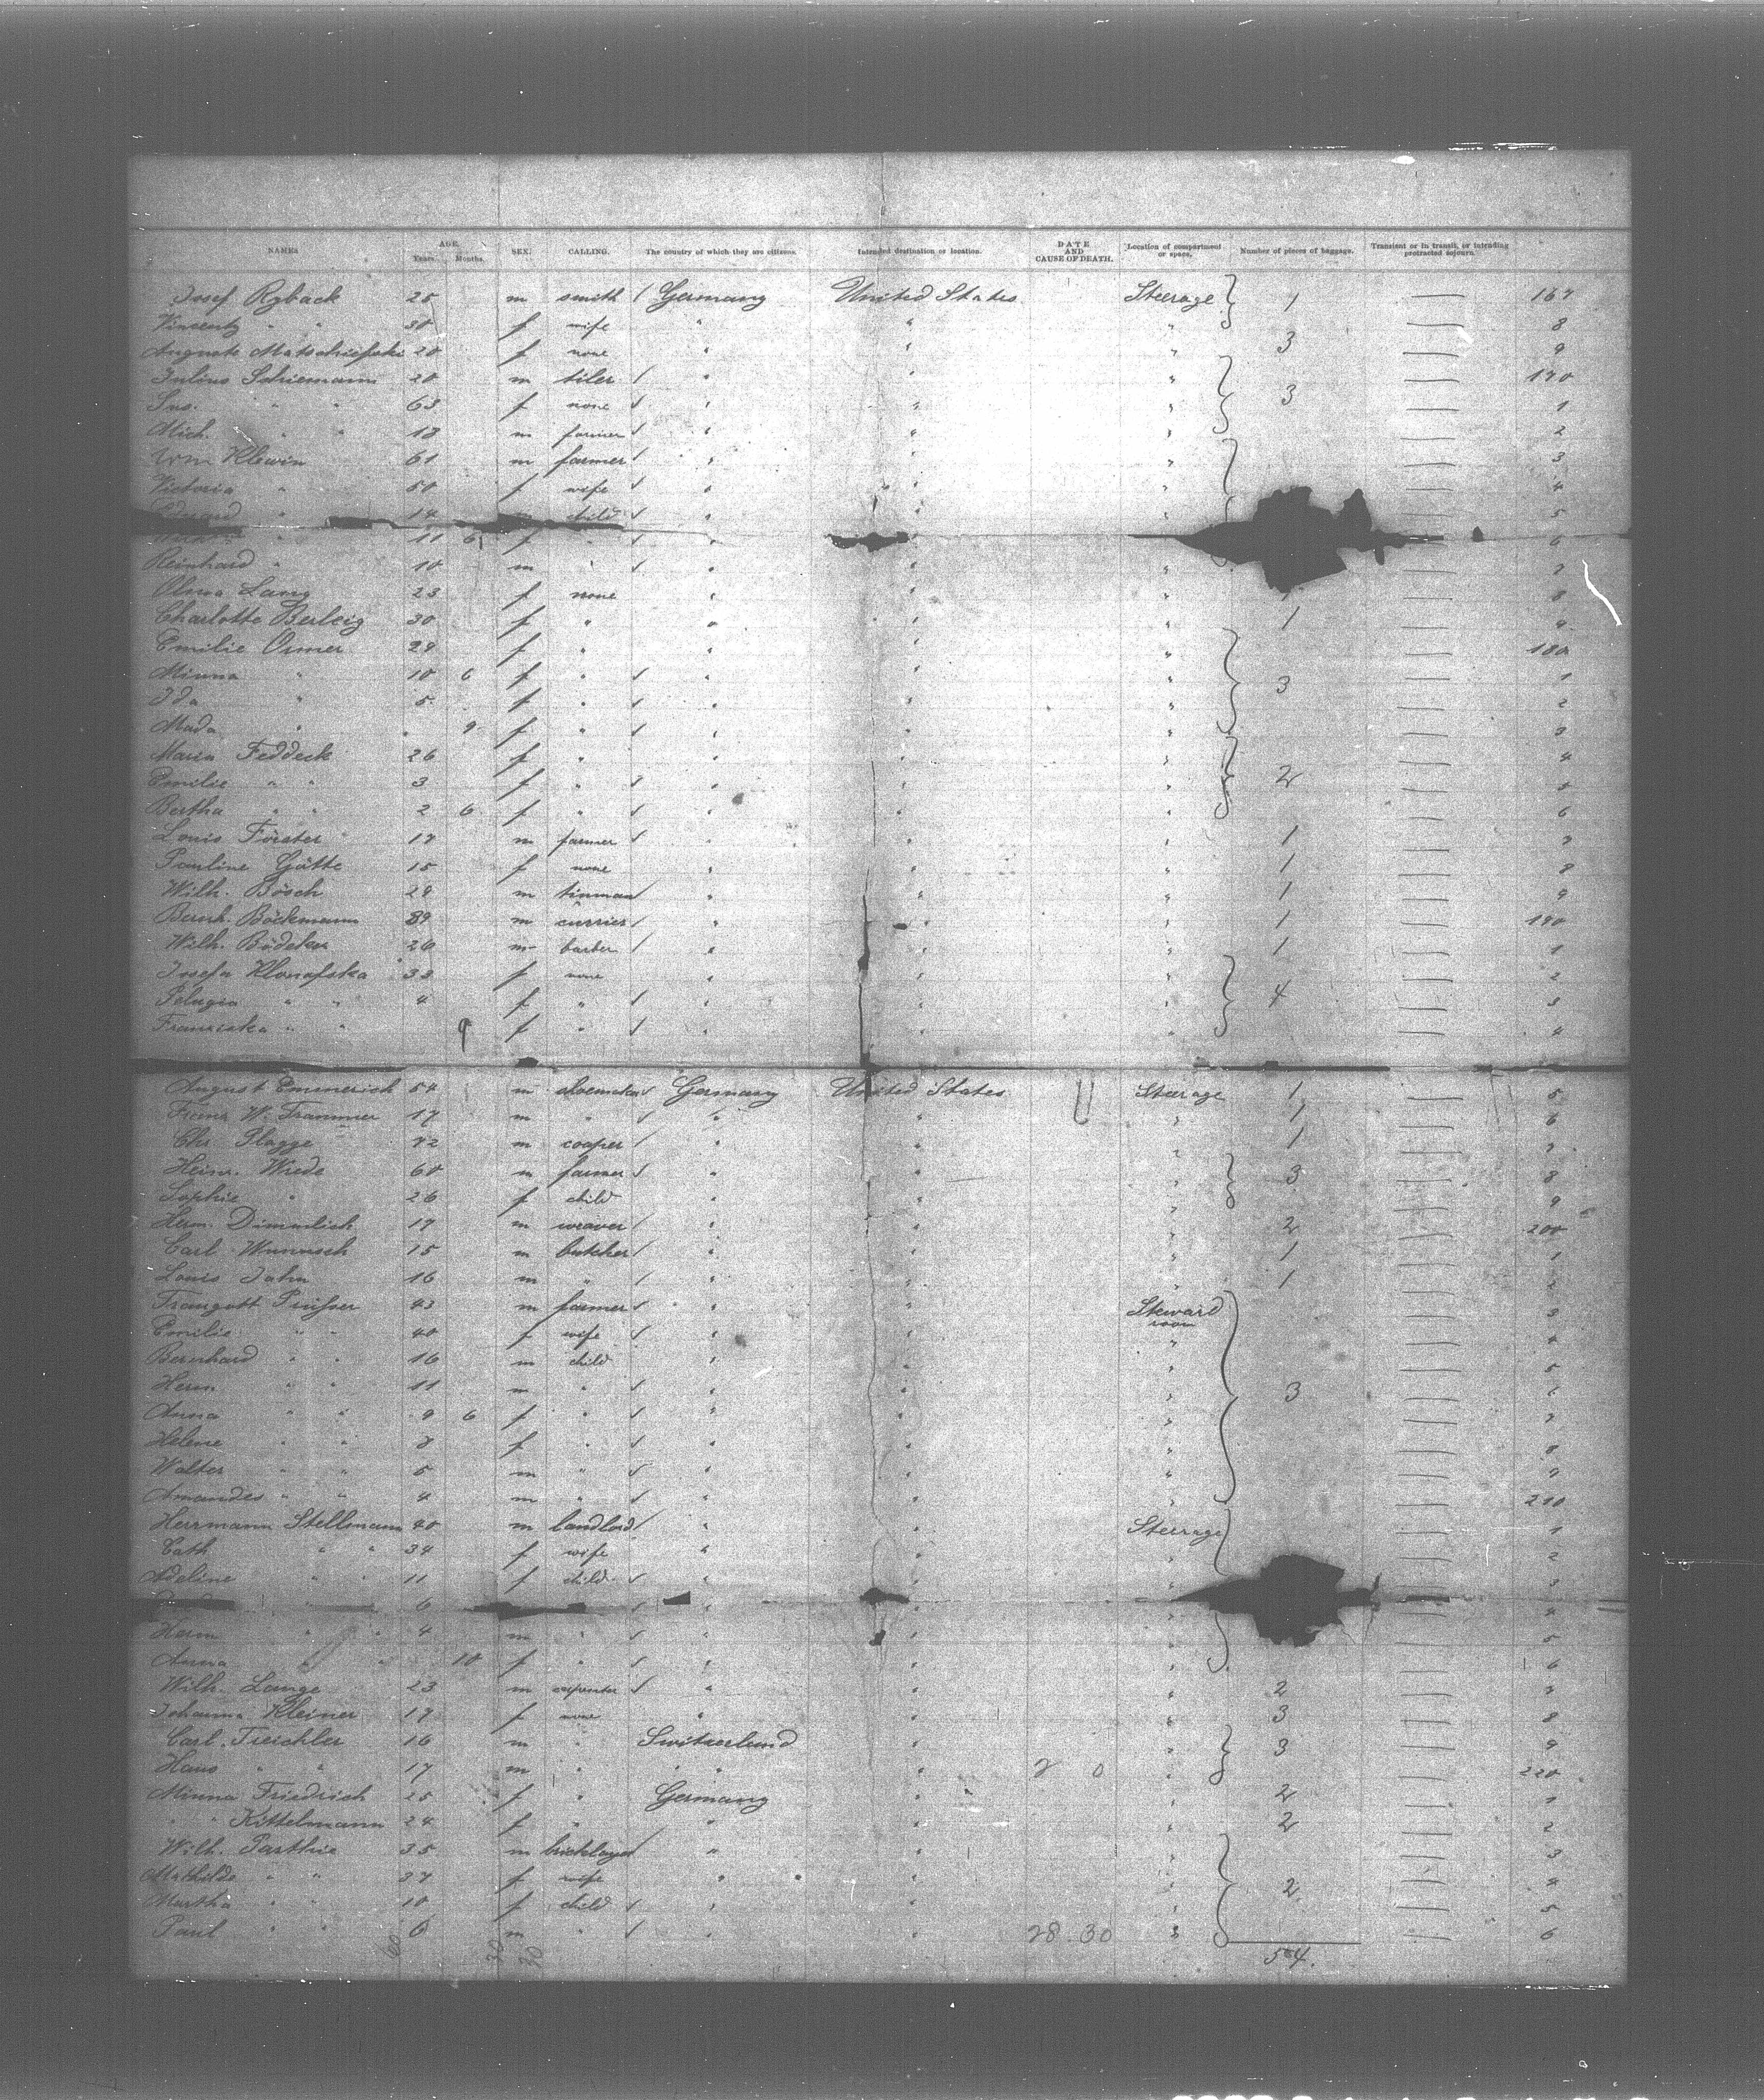 NAMES AGE. Years. Months. SEX. CALLING. The country of which they are citizens. Intended destination or location. DATE AND CAUSE OF DEATH. Location of compartment or space. Number of pieces of baggage. Transient or in transit, or intending protracted sojourn.
Josef Ryback 25 m smith Germany United States Steerage 1 — 167
30 f wife " " " — 8
20 f none " " " 3 — 9
Julius Schiemann 20 m tiler " " " — 170
63 f none " " " 3 — 1
Mich. " " 18 m farmer " " " — 2
Wm Klewin 61 m farmer " " " — 3
Victoria " 50 f wife " " " — 4
14 child " " — 5
11 6 f " " — 6
Reinhard " 10 m " " " " — 7
Lang 23 f none " " " — 8
Charlotte Berleig 30 f " " " " 1 — 9
Emilie Ormer 29 f " " " " — 180
Minna " 10 6 f " " " " 3 — 1
Ida " 5 f " " " " — 2
" 9 f " " " " — 3
Maria Feddeck 26 f " " " " — 4
Emilie " " 3 f " " " " 2 — 5
Bertha " " 2 6 f " " " " — 6
Louis Förster 17 m farmer " " " 1 — 7
Pauline Götte 15 f none " " " 1 — 8
Wilh. Bösch 28 m tinman " " " 1 — 9
Bernh. Böckmann 39 m currier " " " 1 — 190
Wilh. Bödeker 26 m barber " " " 1 — 1
Josefa Klonafska 33 f none " " " — 2
Pelagia " " 4 f " " " " 4 — 3
Franziska " " 9 f " " " " — 4
August Emmerich 54 m Germany United States Steerage 1 — 5
Franz W. Trammer 17 m " " " " 1 — 6
Chr. Plagge m cooper " " " 1 — 7
Heinr. Wrede 60 m farmer " " " 3 — 8
Sophie " 26 f child " " " — 9
Herm. Dimmlich 17 m weaver " " " 2 — 200
Carl Wunnsch 15 m butcher " " " 1 — 1
Louis Jahn 16 m " " " " 1 — 2
Traugott 43 m farmer " " Steward room — 3
Emilie " " 40 f wife " " " — 4
Bernhard " " 16 m child " " " — 5
Herm " " 11 m " " " " 3 — 6
Anna " " 9 6 f " " " " — 7
Helene " " f " " " " — 8
Walter " " 5 m " " " " — 9
Amandes " " 4 m " " " " — 210
Herrmann Stellmann 40 m landlord " " Steerage — 1
Cath " " 34 f wife " " " — 2
Adeline " " 11 f child " " " — 3
6 " " — 4
Herm " " 4 m " " " " — 5
Anna " " 10 f " " " " — 6
Wilh. Lange 23 m carpenter " " " 2 — 7
Johanna Kleiner 17 f none " " " 3 — 8
Carl Treichler 16 m " Switzerland " " 3 — 9
Hans " " 17 m " " " " — 220
Minna Friedrich 25 f " Germany " " 2 — 1
" " Kittelmann 24 f " " " " 2 — 2
Wilh. Parthie 35 m bricklayer " " " — 3
Mathilde " " 37 f wife " " " 2 — 4
Martha " " 10 f child " " " — 5
Paul " " 6 m " " " 28.30 " — 6